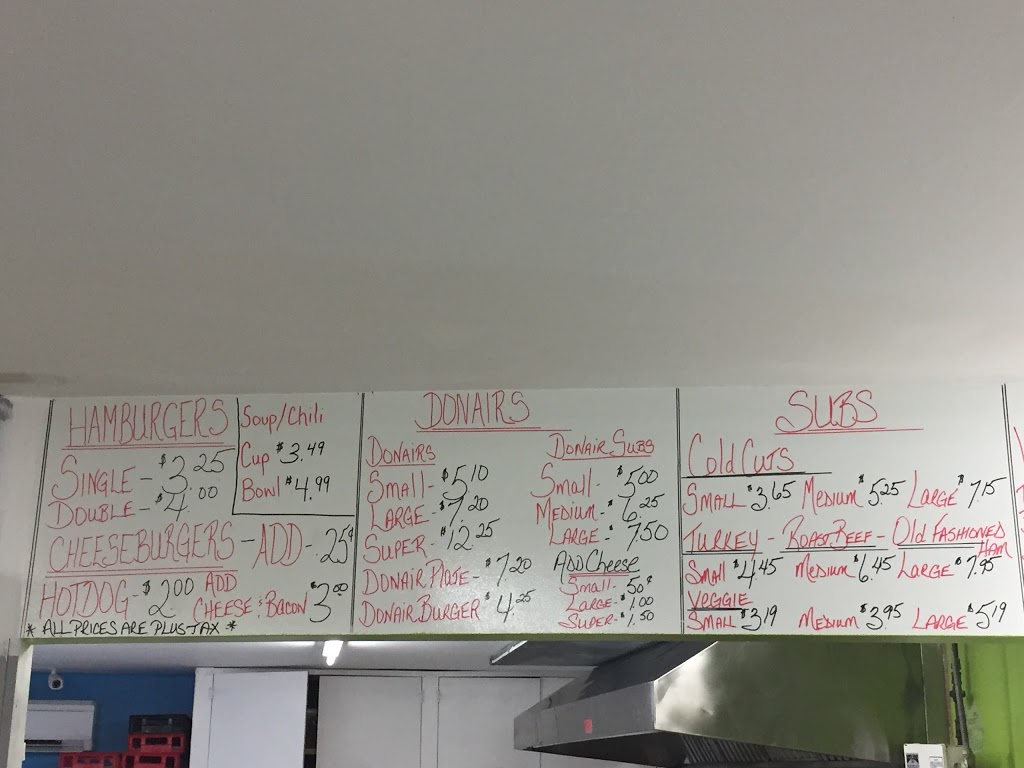 HAMBURGERS
SINGLE - $3.25
DOUBLE - $4.00
Soup/Chili
Cup $3.49
Bowl $4.99
CHEESEBURGERS - ADD - .25¢
HOTDOG - $2.00 ADD CHEESE & BACON $3.00
* ALL PRICES ARE PLUS TAX *
DONAIRS
DONAIRS
Small - $5.10
LARGE - $7.20
SUPER - $12.25
DONAIR PLATE - $7.20
DONAIR BURGER $4.25
DONAIR SUBS
Small - $5.00
MEDIUM - $6.25
LARGE - $7.50
ADD CHEESE
Small - 50¢
Large - $1.00
SUPER - $1.50
SUBS
Cold Cuts
SMALL $3.65 MEDIUM $5.25 LARGE $7.15
TURKEY - ROAST BEEF - Old FASHIONED HAM
SMALL $4.45 MEDIUM $6.45 LARGE $7.95
VEGGIE
SMALL $3.19 MEDIUM $3.95 LARGE $5.19